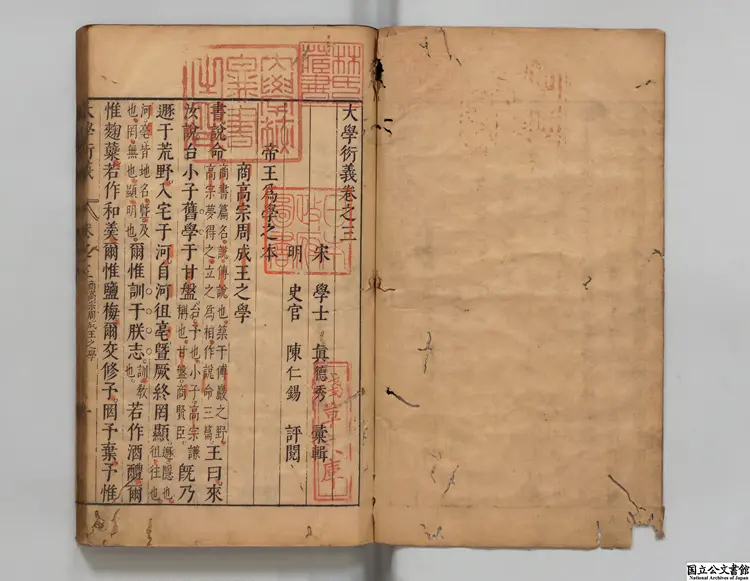 大學衍義卷之三
宋 學士 眞德秀 彙輯
明 史官 陳仁錫 評閱
帝王爲學之本
商高宗周成王之學
書說命商書篇名說傅說也築于傅巖之野高宗夢得之立之爲相作說命三篇王曰來
汝說台小子舊學于甘盤台予也小子高宗謙稱也甘盤商賢臣旣乃
遯于荒野入宅于河自河徂亳曁厥終罔顯遯隱也徂往也
河亳皆地名曁及也罔無也顯明也爾惟訓于朕志訓教也若作酒醴爾
惟麴蘖若作和羹爾惟鹽梅爾交修予罔予棄予惟
大學衍義 卷之三 商高宗周成王之學 一
林氏藏書
日本政府圖書
淺草文庫
国立公文書館
National Archives of Japan